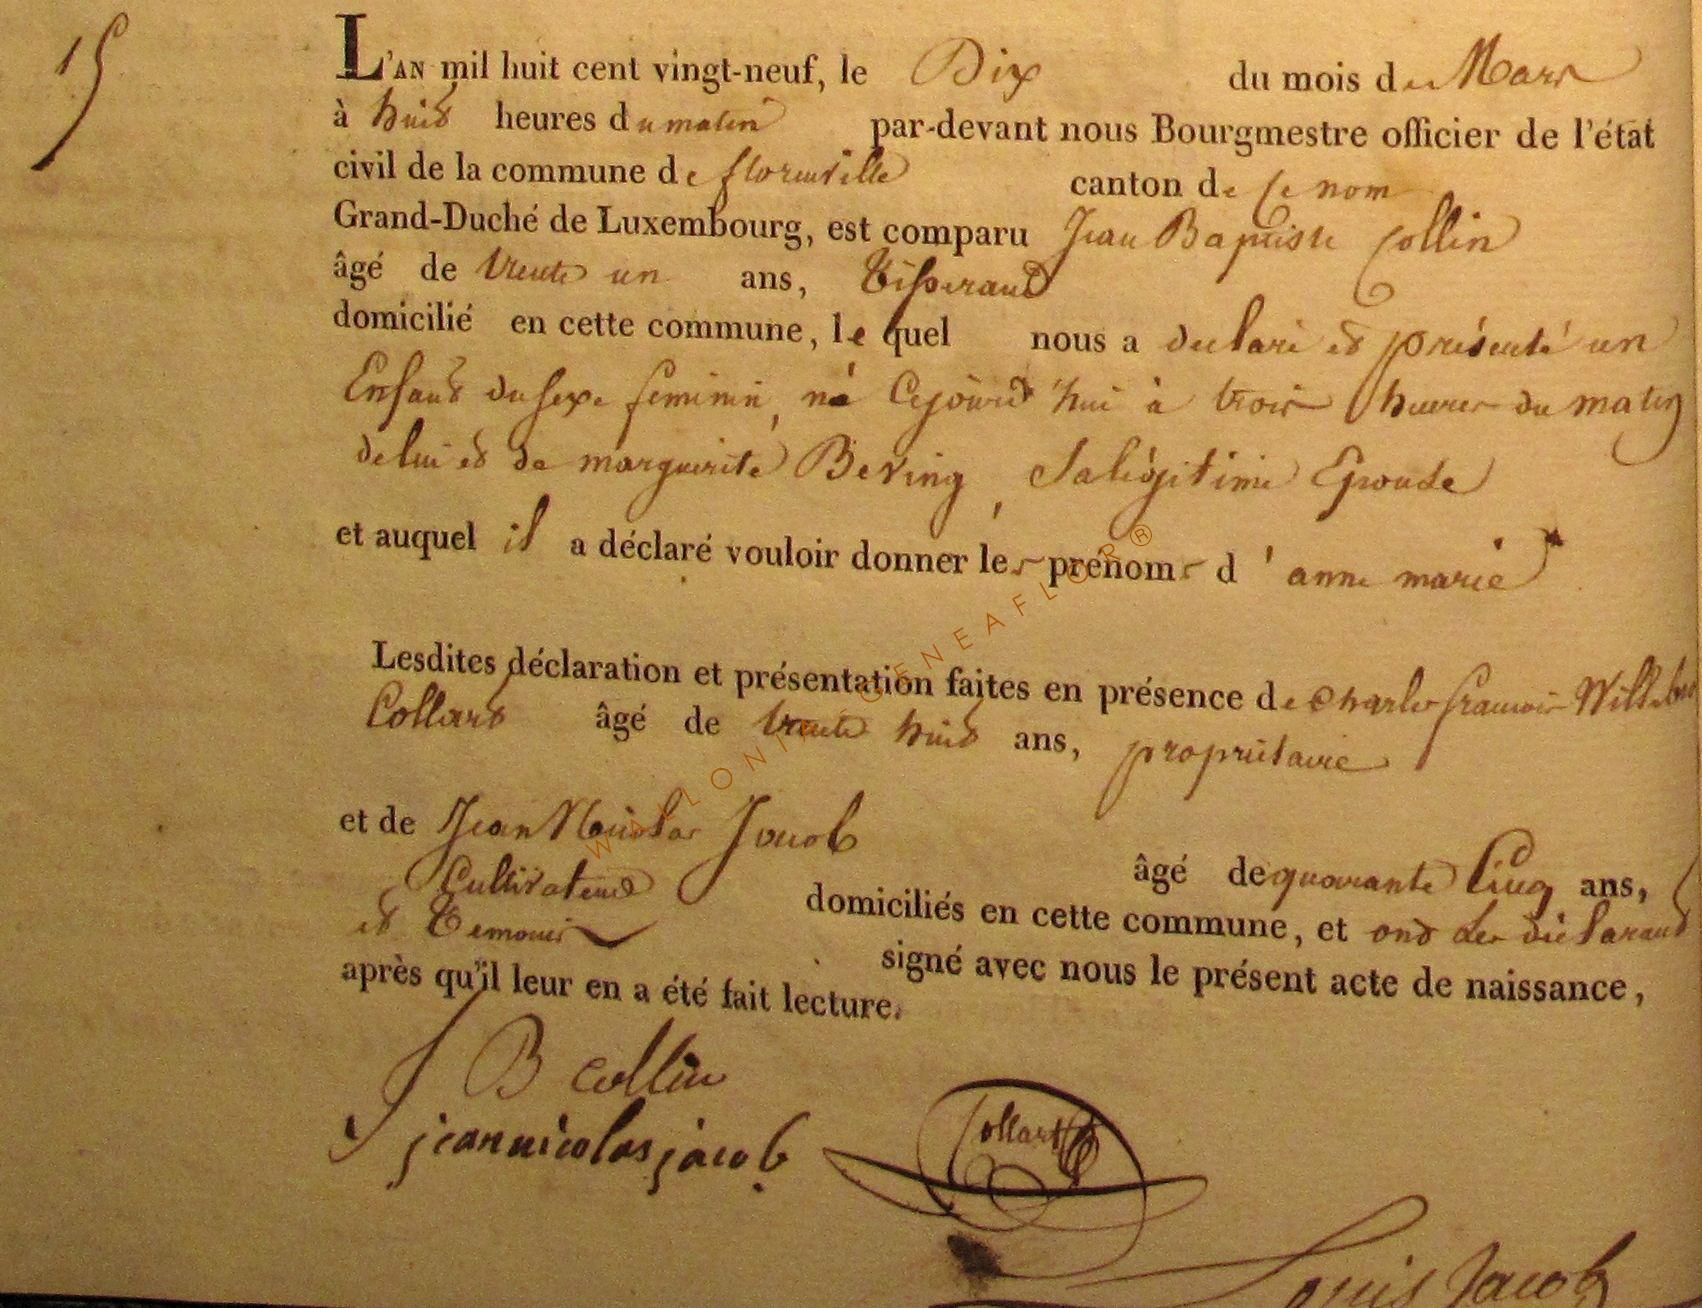 15
L'AN mil huit cent vingt-neuf, le Dix du mois de Mars
à huit heures du matin par-devant nous Bourgmestre officier de l'état
civil de la commune de florenville canton de ce nom
Grand-Duché de Luxembourg, est comparu Jean Baptiste Collin
âgé de trente un ans, Tisserand
domicilié en cette commune, le quel nous a declaré et présenté un
Enfant du sexe feminin, né Cejourd'hui à trois heures du matin
de lui et de marguerite Bering, Sa légitime Epouse
et auquel il a déclaré vouloir donner les prénoms d'anne marie
Lesdites déclaration et présentation faites en présence de Charles francois
Collard âgé de trente huit ans, propriétaire
et de Jean Nicolas Jacob âgé de quarante Cinq ans,
Cultivateur
et Temoins domiciliés en cette commune, et ont les déclarant
signé avec nous le présent acte de naissance,
après qu'il leur en a été fait lecture.
J B collin
jean nicolas jacob
Collart
Louis Jacob
WALLONIE GENEAFLOR®